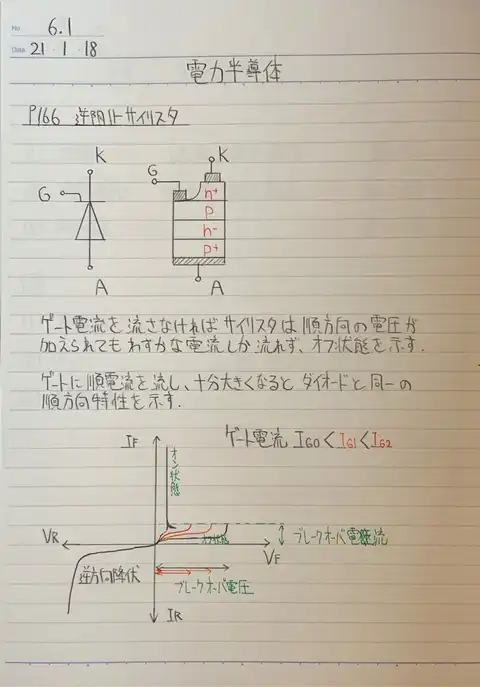 No 6.1
Date 21・1・18
電力半導体
P166 逆阻止サイリスタ
K
G
A
G
K
n+
p
n-
p+
A
ゲート電流を流さなければサイリスタは順方向の電圧が
加えられてもわずかな電流しか流れず、オフ状態を示す.
ゲートに順電流を流し、十分大きくなるとダイオードと同一の
順方向特性を示す.
ゲート電流 IG0<IG1<IG2
IF
オン状態
VR
オフ状態
VF
ブレークオーバ電流
逆方向降伏
ブレークオーバ電圧
IR